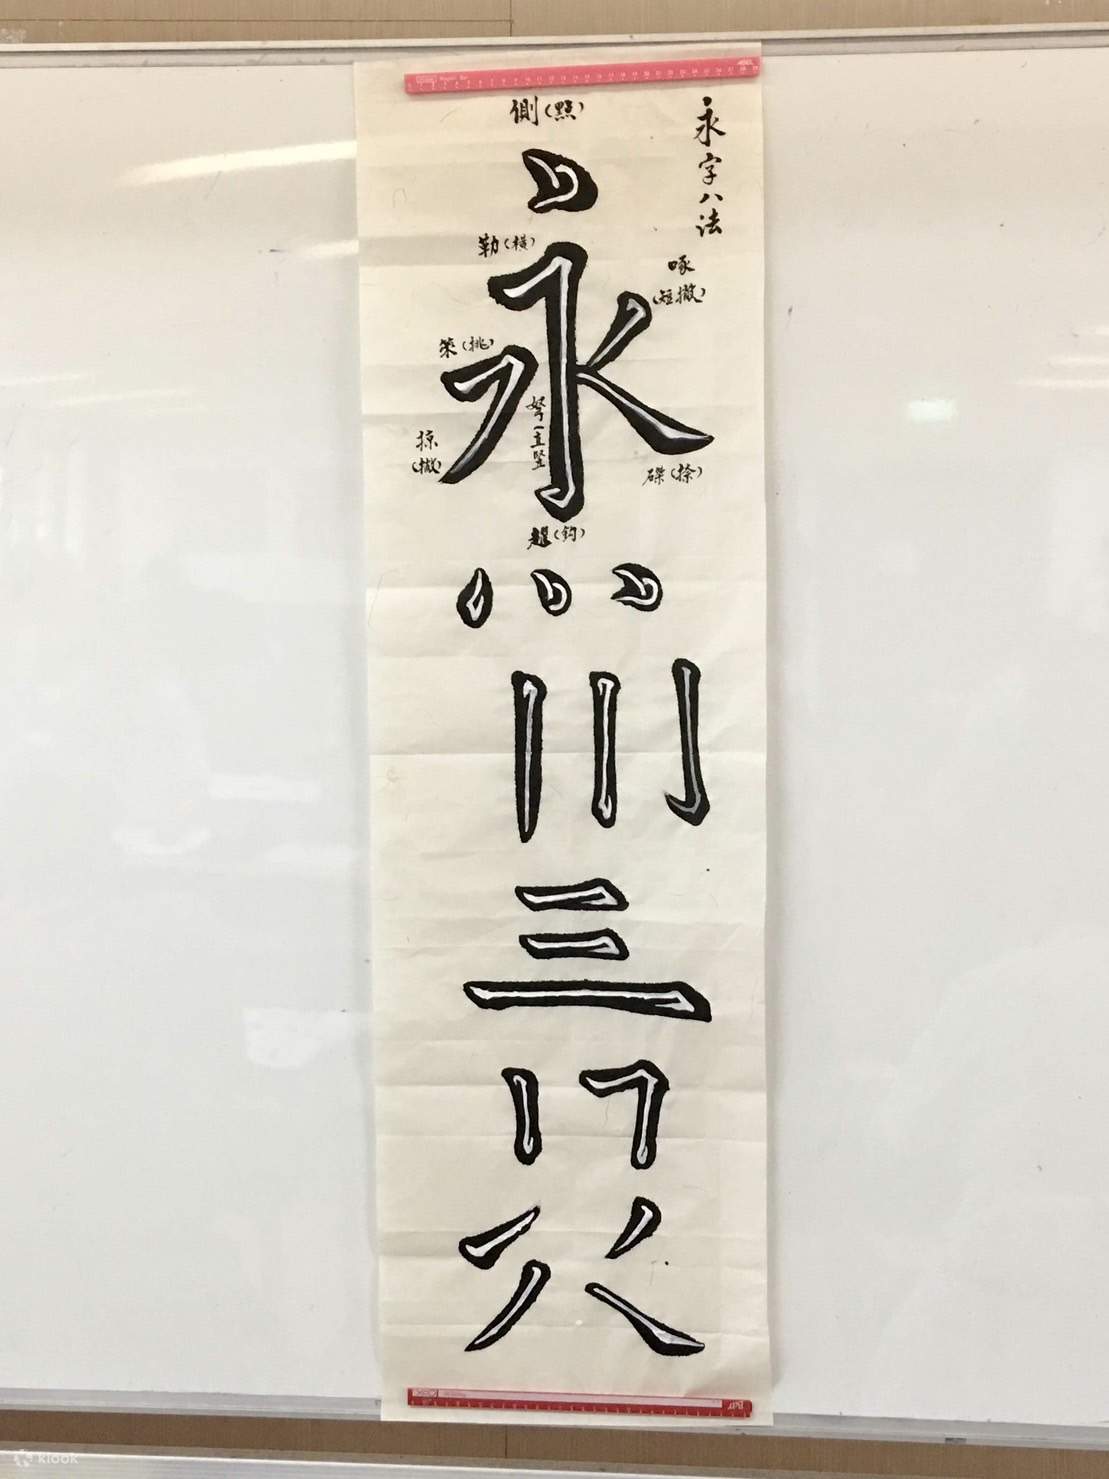 永字八法
側(點)
勒(橫)
啄
(短撇)
策(挑)
掠
(撇)
努(豎
磔(捺)
趯(鈎)
永
klook